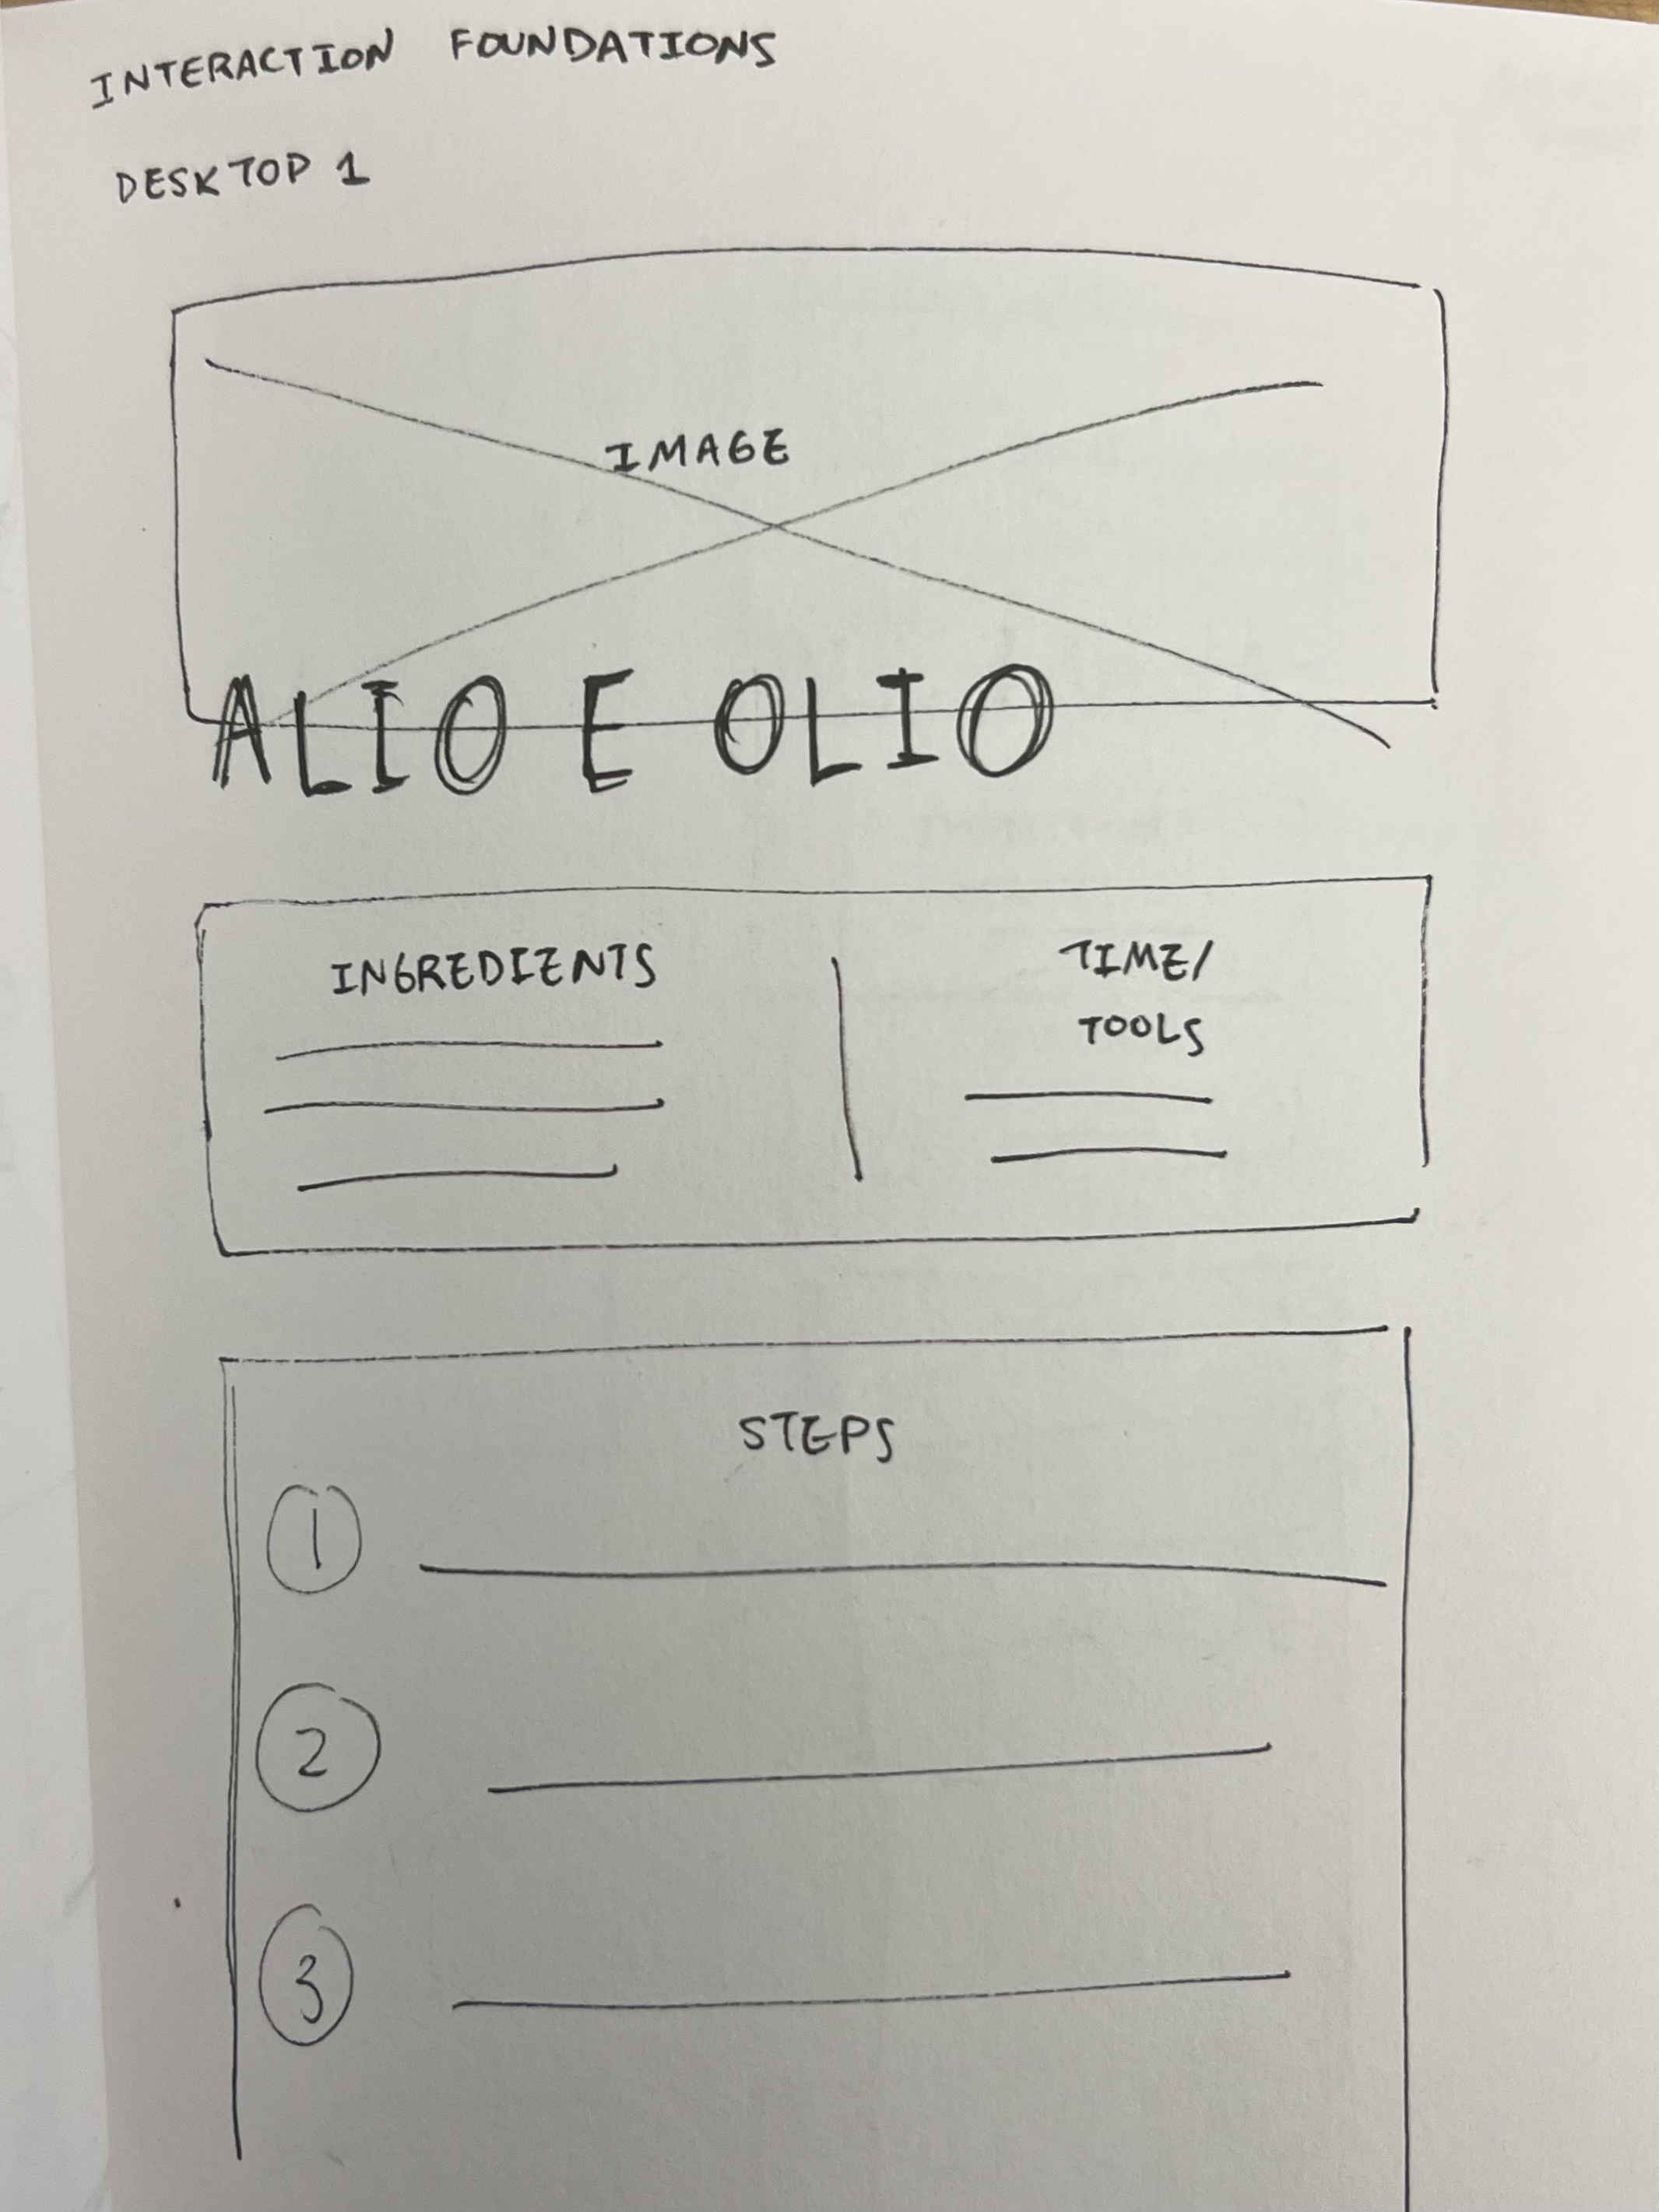 INTERACTION FOUNDATIONS
DESKTOP 1
IMAGE
ALIO E OLIO
INGREDIENTS
TIME/
TOOLS
STEPS
1
2
3